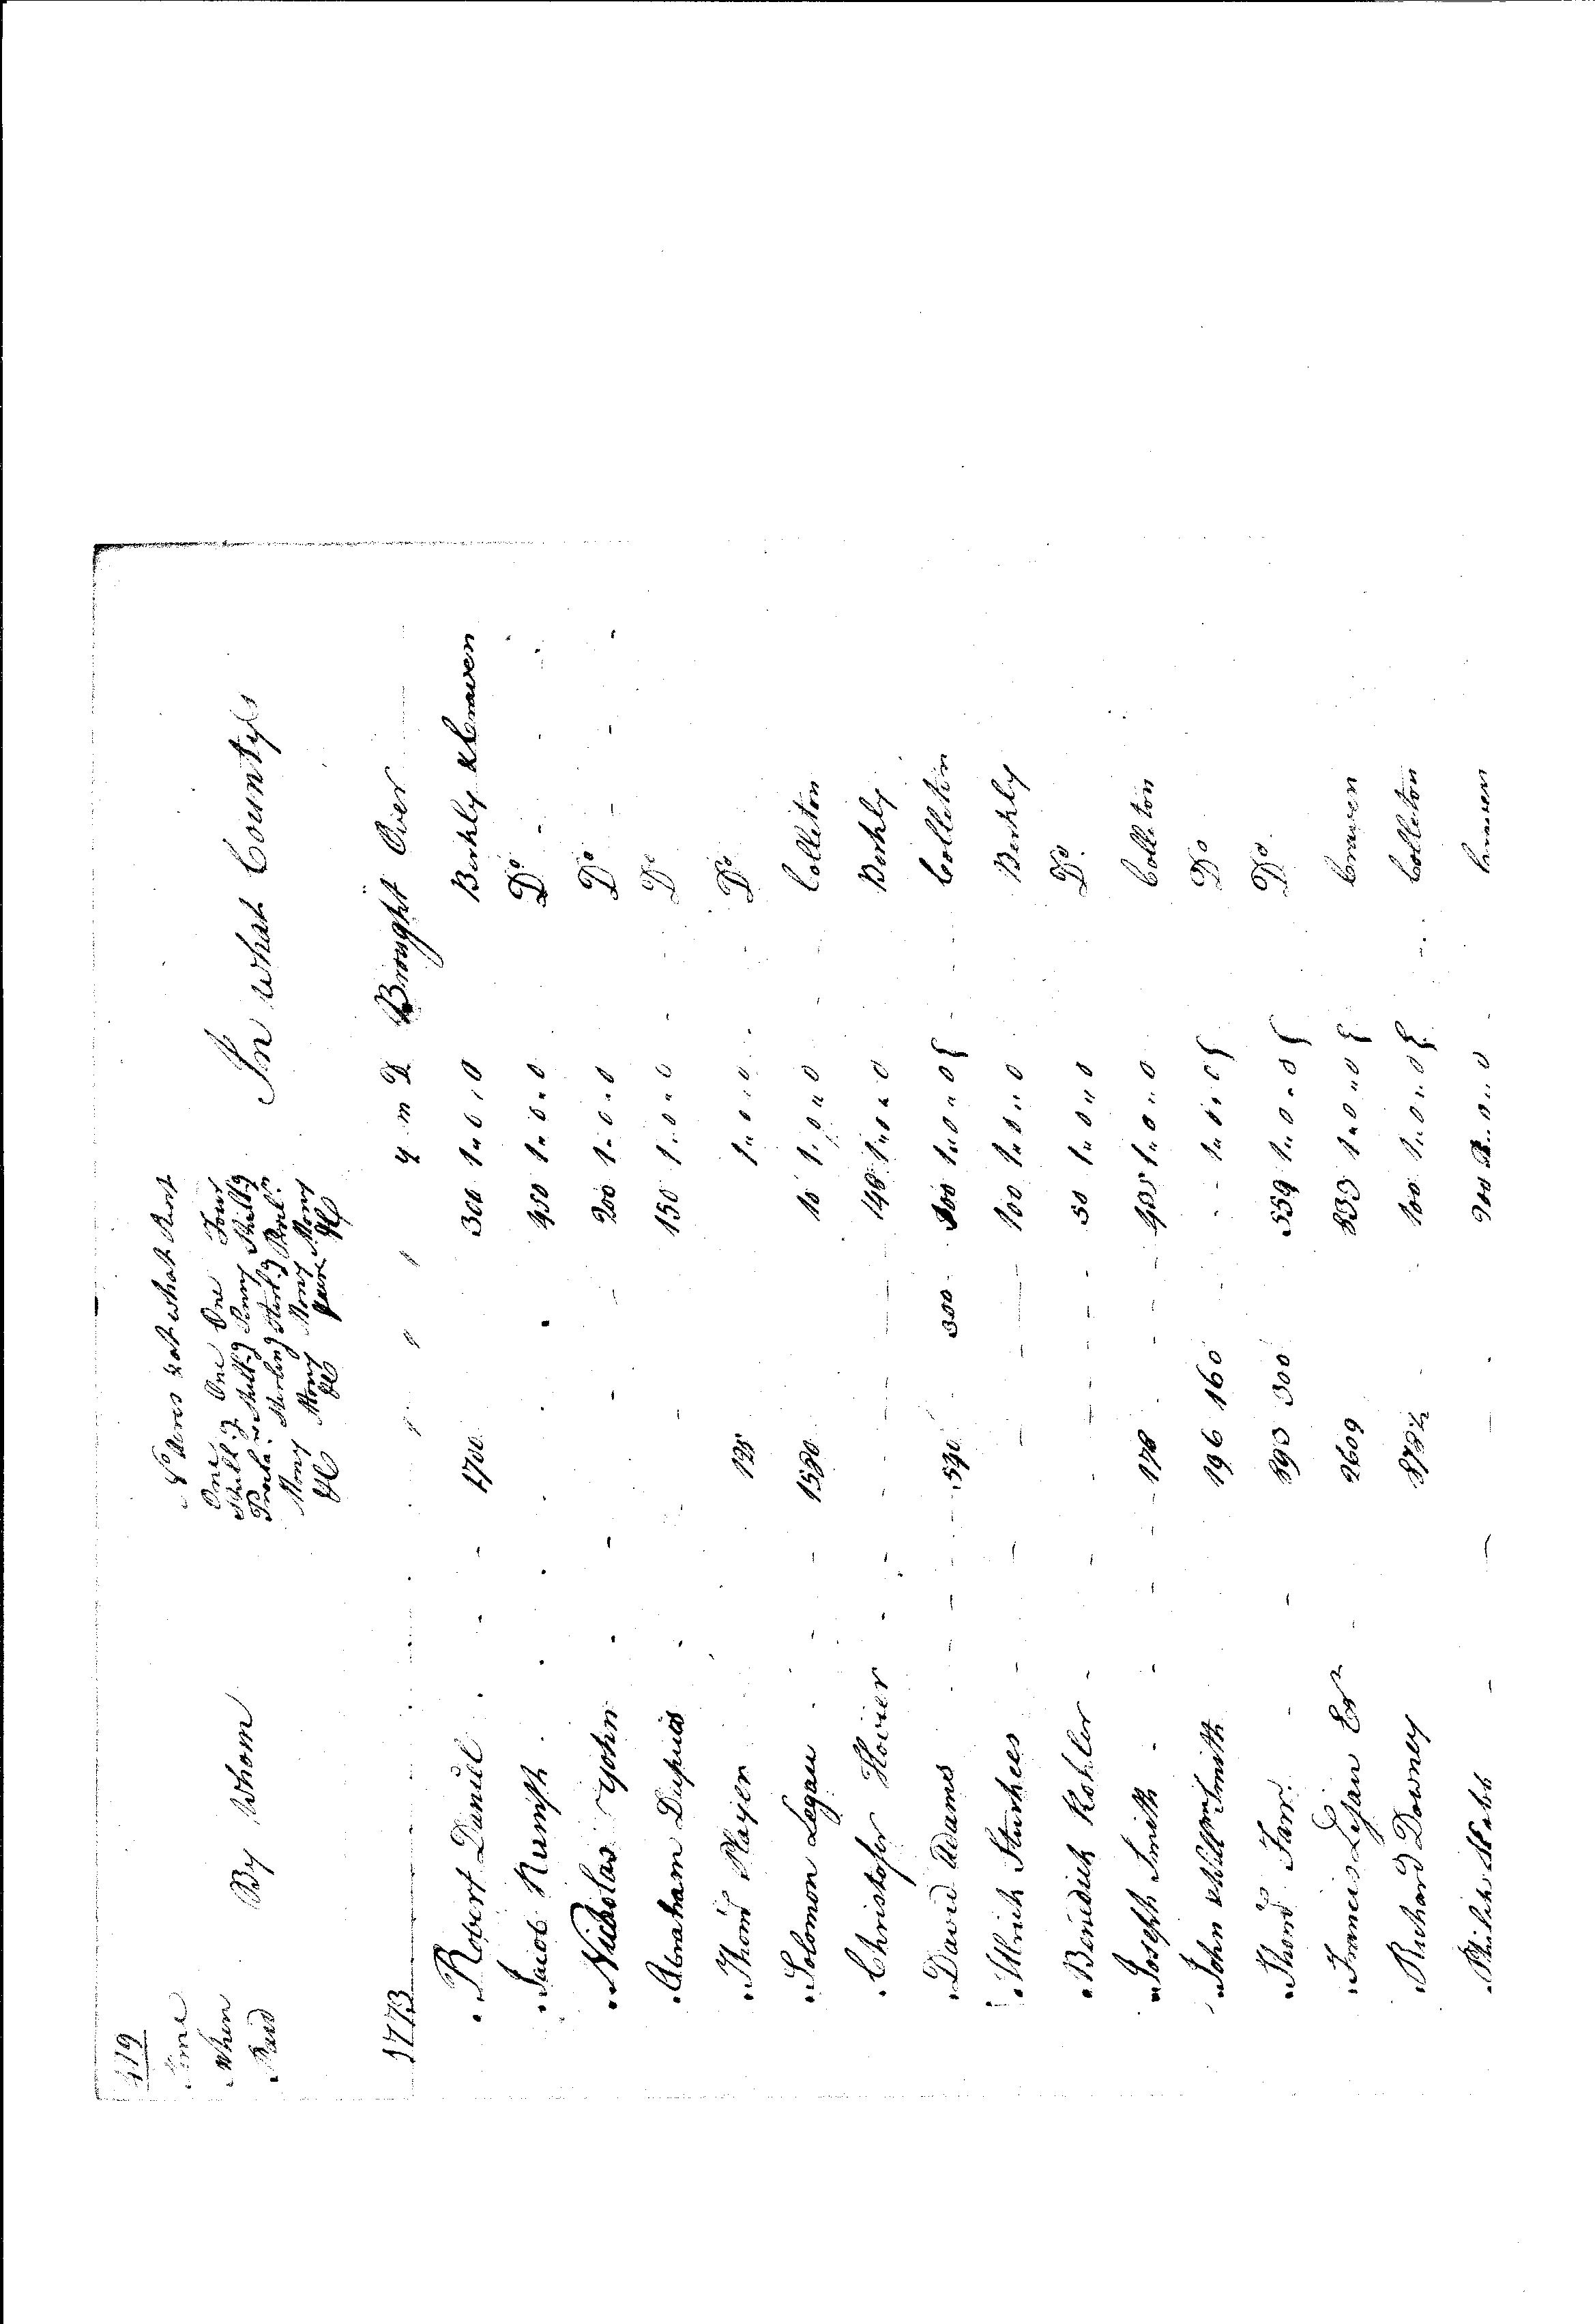 419
Time When Paid
By Whom
N.o Acres & at what Rent
One Shill.g Procla.n Mony &C
One Shill.g Sterling Mony &C
One Penny Sterl.g Mony
Four Shill.g Procl.n Mony &C
In what County's
1773 y m D Brought Over
Robert Daniell 4700 300 1 " 0 " 0 Berkly & Craven
Jacob Rumph 450 1 " 0 " 0 D.o
Nicholas Yohn 200 1 " 0 " 0 D.o
Abraham Dupuis 150 1 " 0 " 0 D.o
Thom.s Player 125 1 " 0 " 0 D.o
Solomon Legau 1580 10 1 " 0 " 0 Colleton
Christofer Hovier 148 1 " 0 " 0 Berkly
David Adams 590 300 300 1 " 0 " 0 Colleton
Ulrich Sturkees 100 1 " 0 " 0 Berkly
Benedick Kohler 50 1 " 0 " 0 D.o
Joseph Smith 178 495 1 " 0 " 0 Colleton
John & Will.m Smith 196 160 1 " 0 " 0 D.o
Thom.s Farr 890 300 559 1 " 0 " 0 D.o
Francis Lejau Es.r 2609 833 1 " 0 " 0 Craven
Richard Downey 878½ 100 1 " 0 " 0 Colleton
900 " 0 " 0 Craven